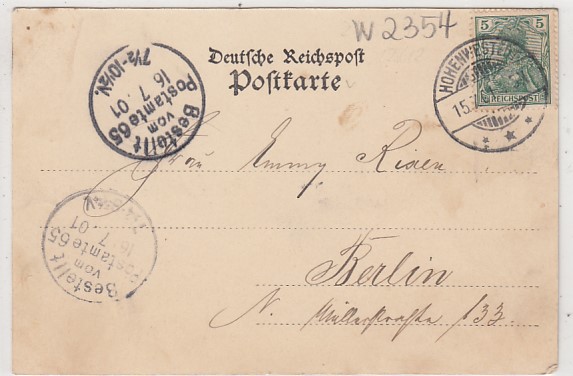 W 2354
Deutsche Reichspost
Postkarte
5 5
REICHSPOST
15.7
Bestellt
vom
Postamte 65
16 7. 01
7½-10½N.
Frau Emmy
Bestellt
vom
Postamte 65
16. 7. 01
Berlin
N. Müllerstraße 133